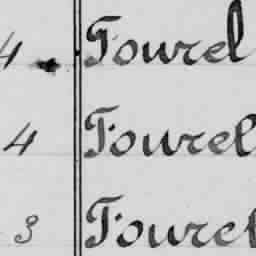 4 Tourel
4 Tourel
3 Tourel